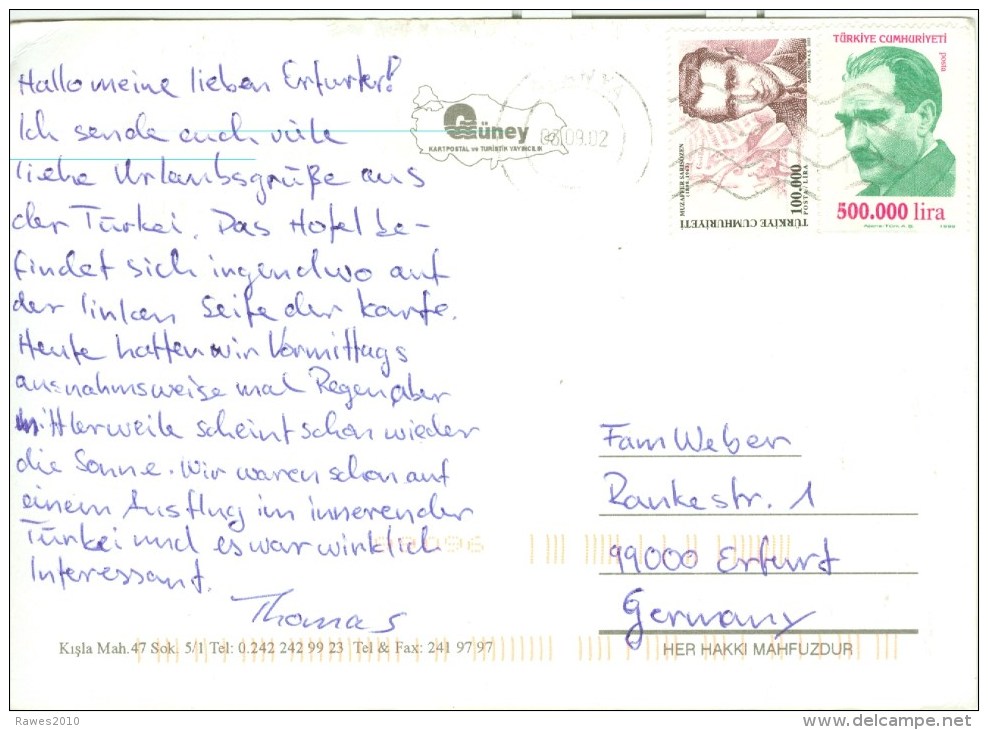 Hallo meine lieben Erfurter!
Ich sende euch viele
liebe Urlaubsgrüße aus
der Türkei. Das Hotel be-
findet sich irgendwo auf
der linken Seite der Karte.
Heute hatten wir Vormittags
ausnahmsweise mal Regen aber
mittlerweile scheint schon wieder
die Sonne. Wir waren schon auf
einem Ausflug im inneren der
Türkei und es war wirklich
Interessant.
Thomas
Güney
KARTPOSTAL ve TURİSTİK YAYINCILIK
06.09.02
MUZAFFER SARISÖZEN
TÜRKİYE CUMHURİYETİ
100.000
POSTA / LİRA
TÜRKİYE CUMHURİYETİ
posta
500.000 lira
Fam Weber
Rankestr. 1
99000 Erfurt
Germany
Kışla Mah.47 Sok. 5/1 Tel: 0.242 242 99 23 Tel & Fax: 241 97 97
HER HAKKI MAHFUZDUR
Rawes2010
delcampe.net